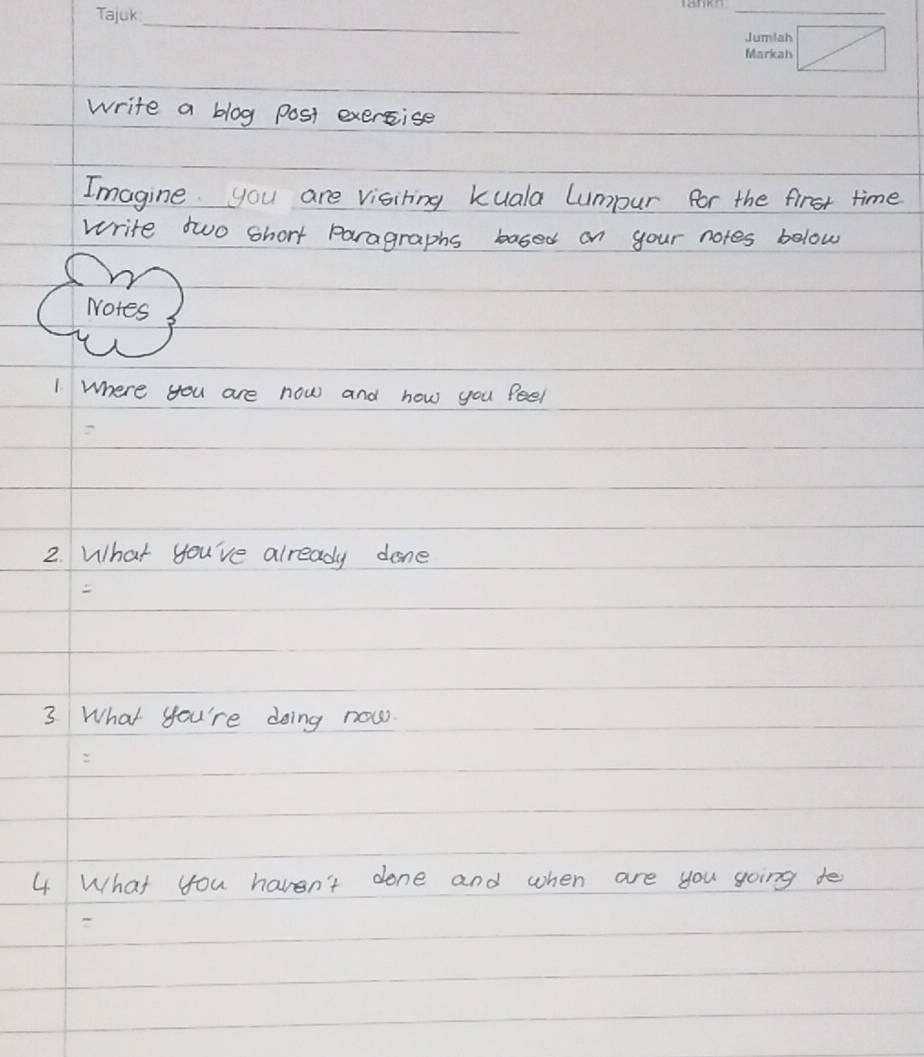 Tajuk:
Tarikh:
Jumlah
Markah
Write a blog post exercise
Imagine. you are visiting Kuala Lumpur for the first time
Write two short paragraphs based on your notes below
Notes
1. Where you are now and how you feel
=
2. What you've already done
=
3 What you're doing now.
=
4 What you haven't done and when are you going to
=